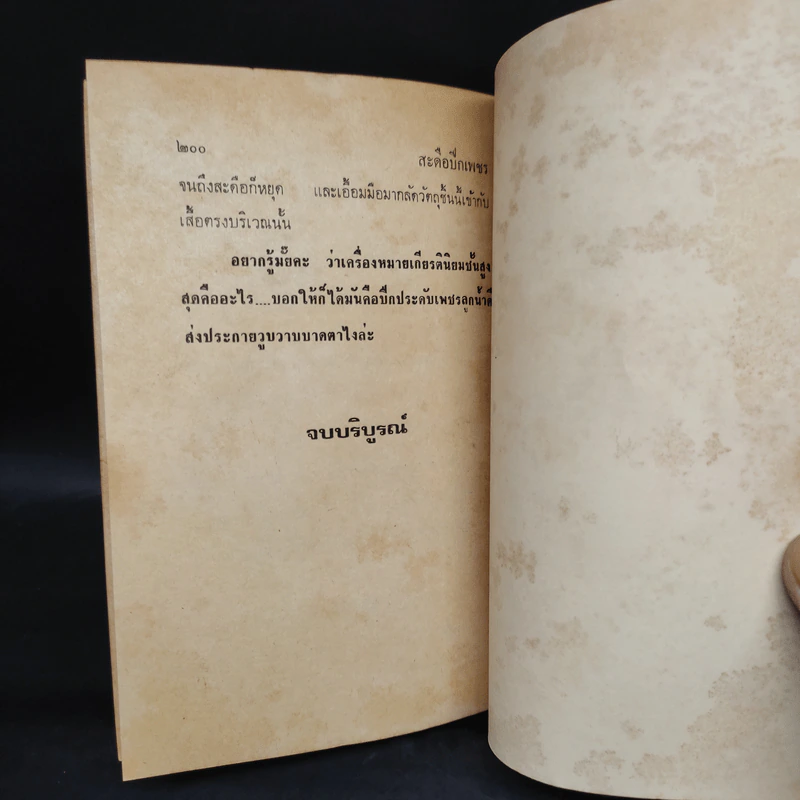 ๒๐๐
สะดือปีกเพชร
จนถึงสะดือก็หยุด และเอื้อมมือมากลัดวัตถุชิ้นนี้เข้ากับ
เสื้อตรงบริเวณนั้น
อยากรู้มั๊ยคะ ว่าเครื่องหมายเกียรตินิยมชั้นสูง
สุดคืออะไร....บอกให้ก็ได้มันคือปีกประดับเพชรลูกน้ำดี
ส่งประกายวูบวาบบาดตาไงล่ะ
จบบริบูรณ์